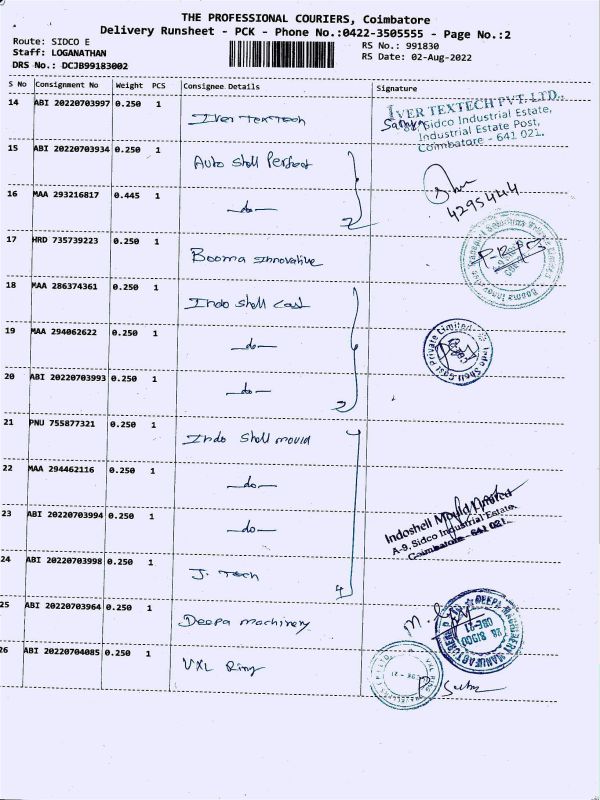 THE PROFESSIONAL COURIERS, Coimbatore
Delivery Runsheet - PCK - Phone No.:0422-3505555 - Page No.:2
Route: SIDCO E
RS No.: 991830
Staff: LOGANATHAN
RS Date: 02-Aug-2022
DRS No.: DCJB99183002
S No Consignment No Weight PCS Consignee Details Signature
14 ABI 20220703997 0.250 1 Iver Textech
IVER TEXTECH PVT. LTD.,
Sidco Industrial Estate,
Industrial Estate Post,
Coimbatore - 641 021.
15 ABI 20220703934 0.250 1 Auto Shell Perfect
16 MAA 293216817 0.445 1 -do- 2
4295444
17 HRD 735739223 0.250 1 Booma Innovative
18 MAA 286374361 0.250 1 Indo Shell Cast
19 MAA 294062622 0.250 1 -do-
Indo Shell Cast Private Limited
20 ABI 20220703993 0.250 1 -do-
21 PNU 755877321 0.250 1 Indo Shell mould
22 MAA 294462116 0.250 1 -do-
23 ABI 20220703994 0.250 1 -do-
Indoshell Mould Limited
A-9, Sidco Industrial Estate,
Coimbatore - 641 021.
24 ABI 20220703998 0.250 1 J. Tech 4
25 ABI 20220703964 0.250 1 Deepa machinery
DEEPA MACHINERY MANUFACTURERS
26 ABI 20220704085 0.250 1 VXL Ring